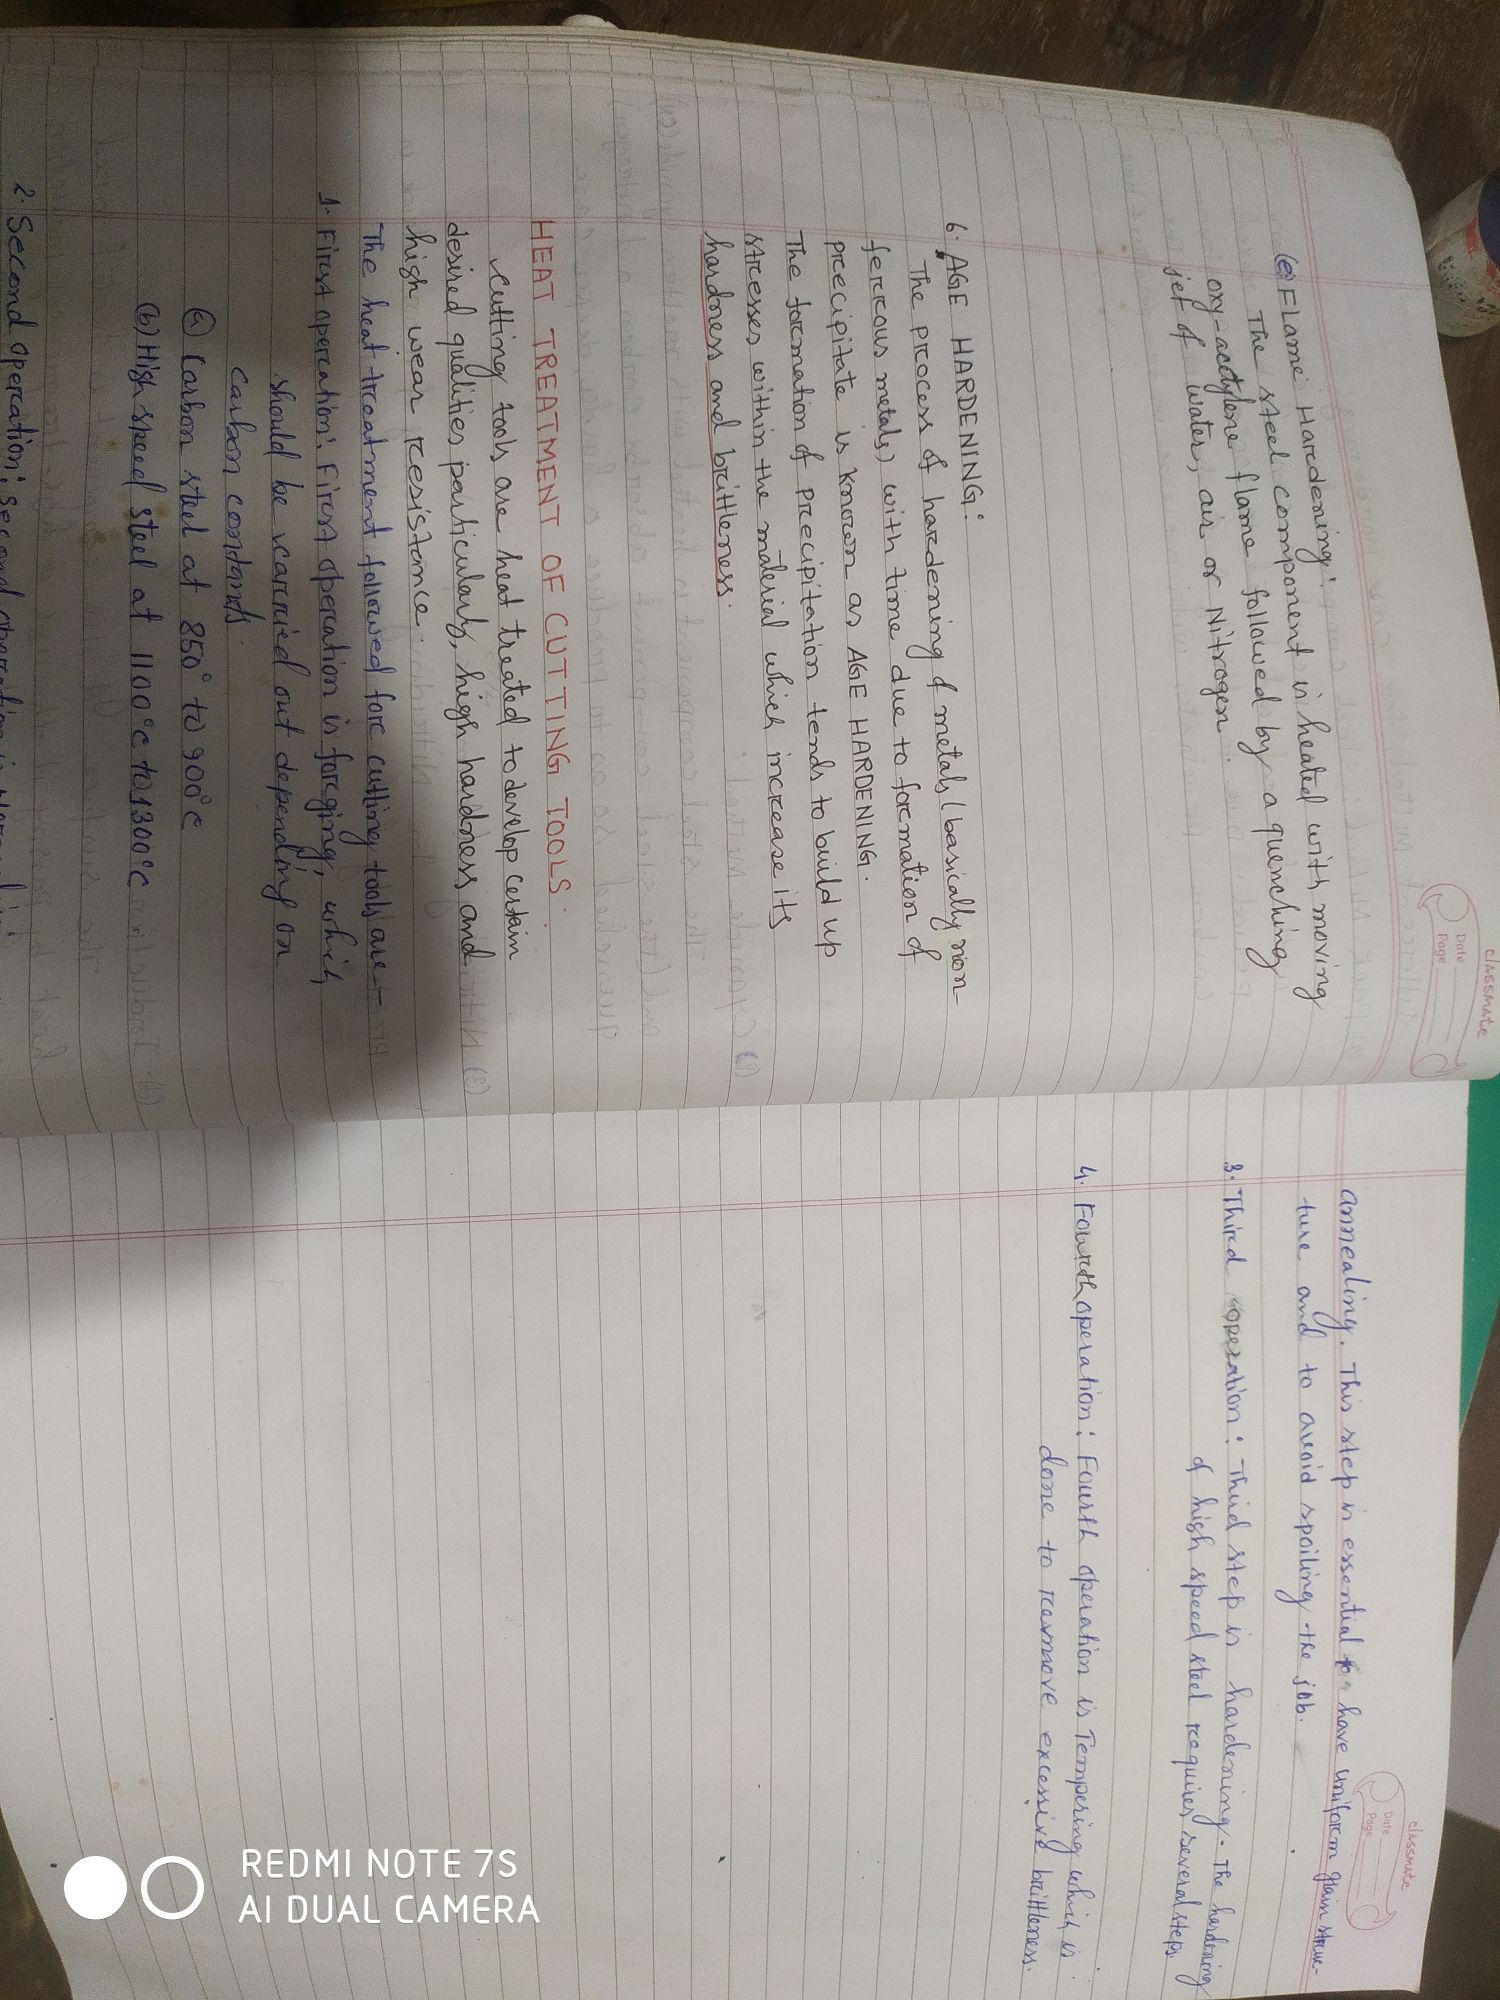 classmate
Date
Page
(e) Flame Hardening:
The steel component is heated with moving
oxy-acetylene flame followed by a quenching
jet of water, air or Nitrogen
6. AGE HARDENING:
The process of hardening of metals (basically non-
ferrous metals) with time due to formation of
precipitate is known as AGE HARDENING.
The formation of precipitation tends to build up
stresses within the material which increase its
hardness and brittleness.
HEAT TREATMENT OF CUTTING TOOLS.
Cutting tools are heat treated to develop certain
desired qualities particularly, high hardness and
high wear resistance.
The heat treatment followed for cutting tools are-
1. First operation: First operation is forging, which
should be carried out depending on
carbon contents.
(a) Carbon steel at 850° to 900°C
(b) High speed steel at 1100°C to 1300°C
2. Second operation: Second operation is
classmate
Date
Page
annealing. This step is essential to have uniform grain struc-
ture and to avoid spoiling the job.
3. Third operation: Third step is hardening. The hardening
of high speed steel requires several steps.
4. Fourth operation: Fourth operation is Tempering which is
done to remove excessive brittleness.
REDMI NOTE 7S
AI DUAL CAMERA